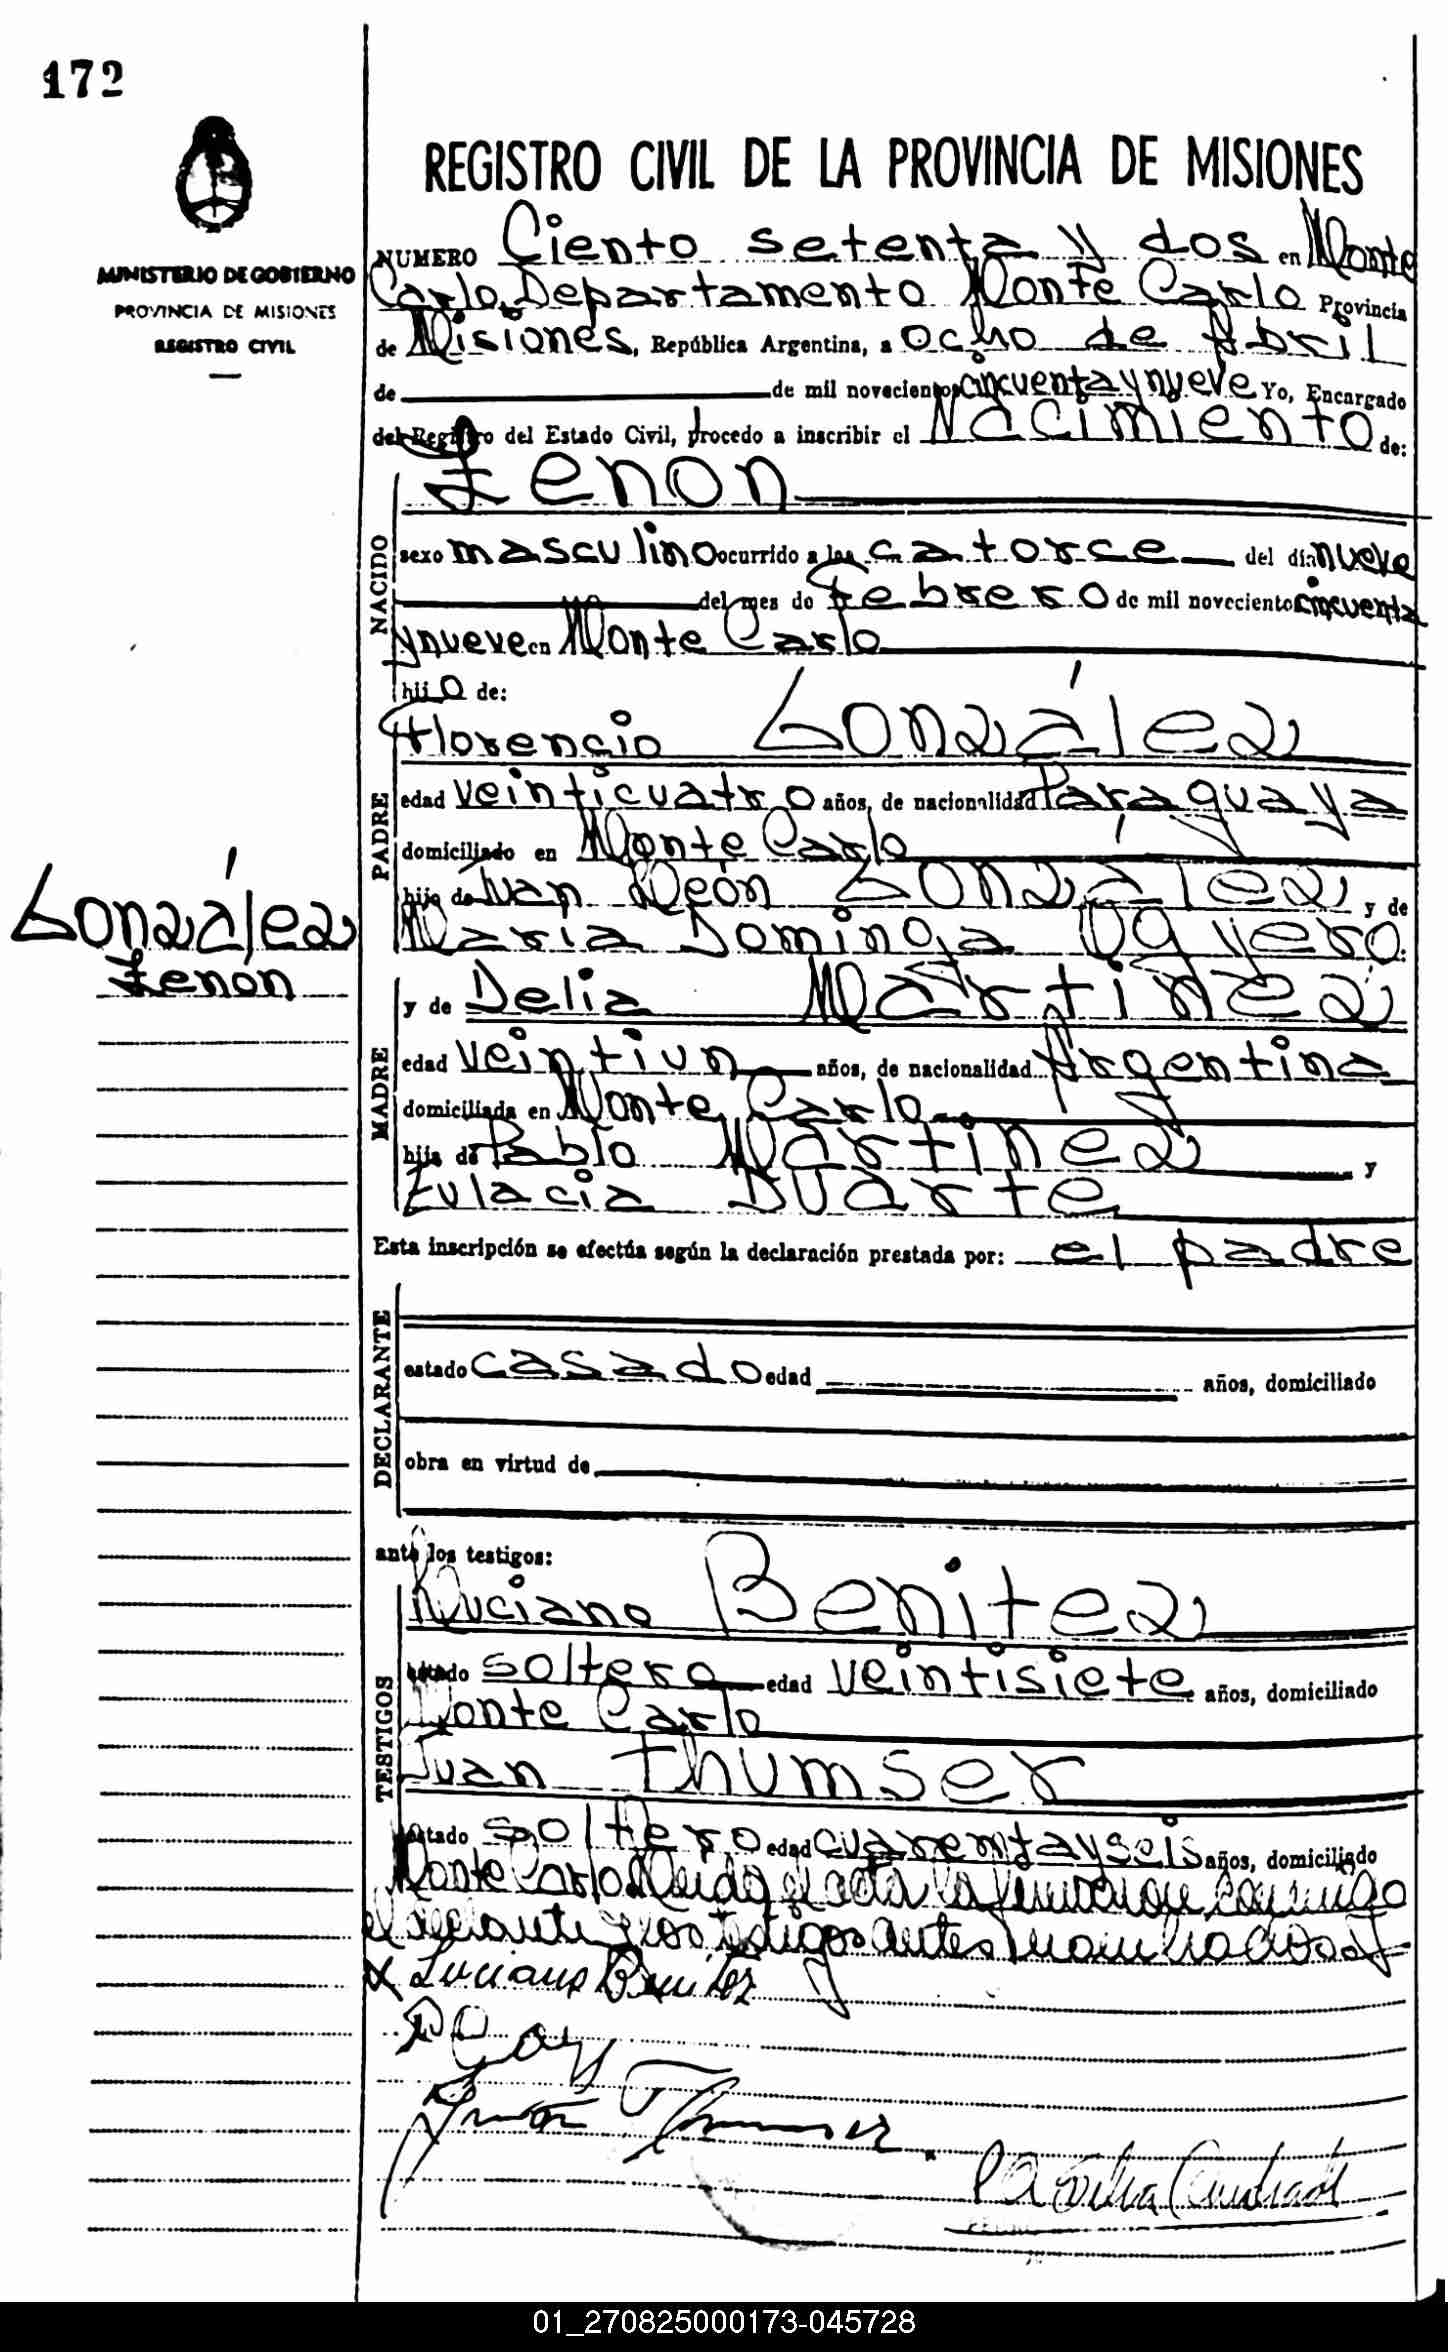 172
MINISTERIO DE GOBIERNO
PROVINCIA DE MISIONES
REGISTRO CIVIL
González
Zenon
REGISTRO CIVIL DE LA PROVINCIA DE MISIONES
NUMERO Ciento setenta y dos en Monte
Carlo, Departamento Monte Carlo Provincia
de Misiones, República Argentina, a ocho de Abril
de de mil novecientos cincuenta y nueve Yo, Encargado
del Registro del Estado Civil, procedo a inscribir el Nacimiento de:
NACIDO
Zenon
sexo masculino ocurrido a las catorce del día nueve
del mes de Febrero de mil novecientos cincuenta
y nueve en Monte Carlo
hijo de:
PADRE
Florencio González
edad veinticuatro años, de nacionalidad Paraguaya
domiciliado en Monte Carlo
hijo de Juan León González y de
Maria Dominga
MADRE
y de Delia Martinez
edad veintiun años, de nacionalidad Argentina
domiciliada en Monte Carlo
hija de Pablo Martinez y
Eulacia Duarte
Esta inscripción se efectúa según la declaración prestada por: el padre
DECLARANTE
estado casado edad años, domiciliado
obra en virtud de
ante los testigos:
TESTIGOS
Luciano Benitez
estado soltero edad veintisiete años, domiciliado
Monte Carlo
Juan Thumser
estado soltero edad cuarenta y seis años, domiciliado
Monte Carlo Leida el acta la conmigo
el y los testigos antes
Luciano Benitez
Juan Thumser
01_270825000173-045728